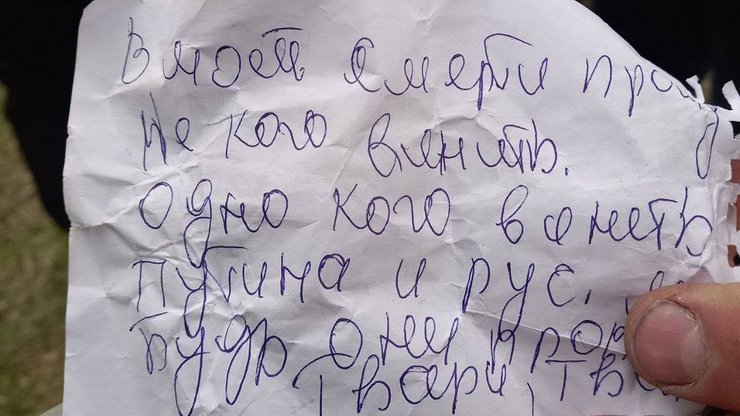 В моей смерти про
не кого винить.
одно кого винить
Путина и рус.
Будь они про
Твари, Тва